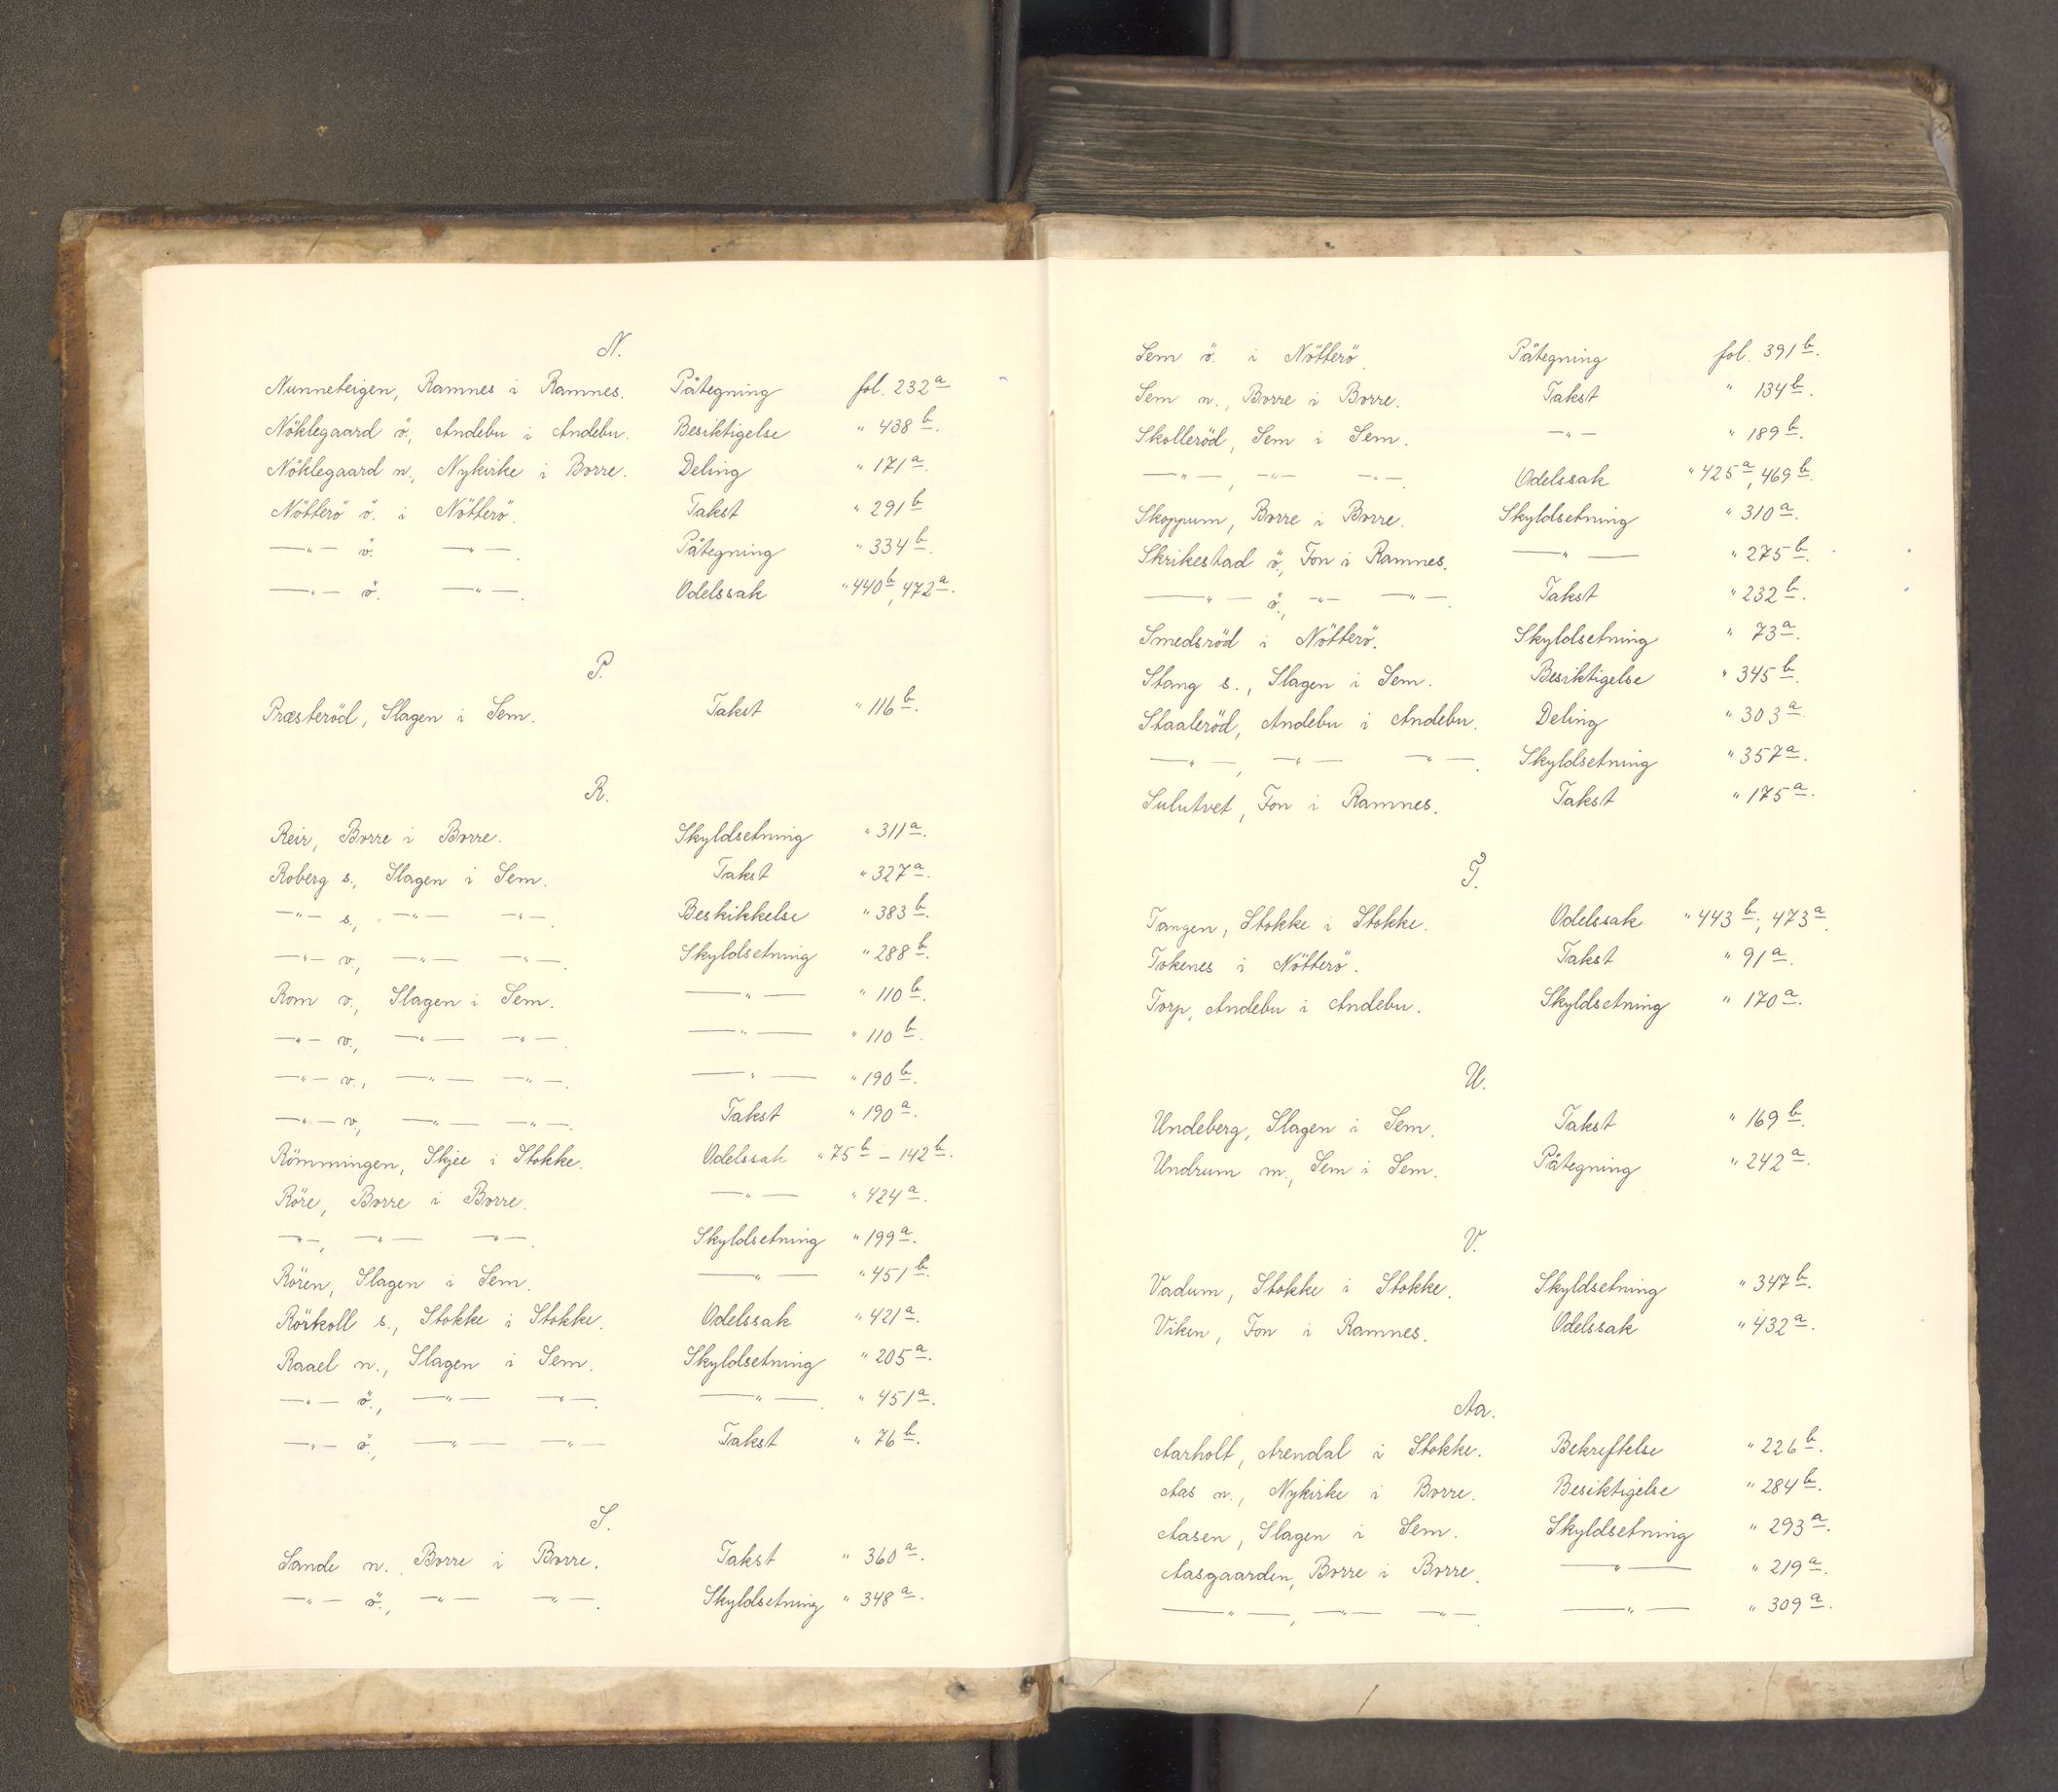 N.
Nunneteigen, Ramnes i Ramnes. Påtegning fol. 232a
Nöklegaard ö., Andebu i Andebu. Besiktigelse " 438b.
Nöklegaard n., Nykirke i Borre. Deling " 171a.
Nötterö ö. i Nötterö. Takst " 291b
—"— ö. —"—. Påtegning " 334b.
—"— ö. —"—. Odelssak " 440b, 472a.
P.
Præsteröd, Slagen i Sem. Takst " 116b.
R.
Reir, Borre i Borre. Skyldsetning " 311a.
Roberg s., Slagen i Sem. Takst " 327a.
—"— s., —"— —"—. Beskikkelse " 383b.
—"— v., —"— —"—. Skyldsetning " 288b.
Rom v., Slagen i Sem. —"— " 110b.
—"— v., —"— —"—. —"— " 110b.
—"— v., —"— —"—. —"— " 190b.
—"— v., —"— —"—. Takst " 190a.
Römmingen, Skjee i Stokke. Odelssak " 75b – 142b.
Röre, Borre i Borre. —"— " 424a.
—"—, —"— —"—. Skyldsetning " 199a.
Rören, Slagen i Sem. —"— " 451b.
Rörkoll s., Stokke i Stokke. Odelssak " 421a.
Raael n., Slagen i Sem. Skyldsetning " 205a.
—"— ö., —"— —"—. —"—. " 451a.
—"— ö., —"— —"— Takst " 76b.
S.
Sande n., Borre i Borre. Takst " 360a.
—"— ö., —"— —"—. Skyldsetning " 348a.
Sem ö. i Nötterö. Påtegning fol. 391b.
Sem n., Borre i Borre. Takst " 134b.
Skolleröd, Sem i Sem. —"— " 189b.
—"—, —"— —"—. Odelssak " 425a, 469b.
Skoppum, Borre i Borre. Skyldsetning " 310a.
Skrikestad ö., Fon i Ramnes. —"— " 275b.
—"— ö., —"— —"—. Takst " 232b.
Smedsröd i Nötterö. Skyldsetning " 73a.
Stang s., Slagen i Sem. Besiktigelse " 345b.
Staaleröd, Andebu i Andebu. Deling " 303a.
—"—, —"— —"—. Skyldsetning " 357a.
Sulutvet, Fon i Ramnes. Takst " 175a.
T.
Tangen, Stokke i Stokke. Odelssak " 443b, 473a.
Tokenes i Nötterö. Takst " 91a.
Torp, Andebu i Andebu. Skyldsetning " 170a.
U.
Undeberg, Slagen i Sem. Takst " 169b.
Undrum m., Sem i Sem. Påtegning " 242a.
V.
Vadum, Stokke i Stokke. Skyldsetning " 347b.
Viken, Fon i Ramnes. Odelssak " 432a.
Aa.
Aarholt, Arendal i Stokke. Bekreftelse " 226b.
Aas n., Nykirke i Borre. Besiktigelse " 284b.
Aasen, Slagen i Sem. Skyldsetning " 293a.
Aasgaarden, Borre i Borre. —"— " 219a.
—"—, —"— —"—. —"— " 309a.